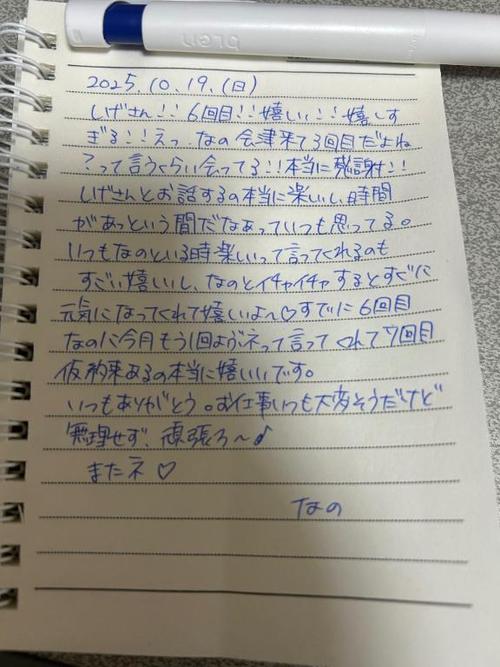 blen
2025.10.19.(日)
しげさん!! 6回目!! 嬉しい!! 嬉しす
ぎる!! えっ、なの会津来て3回目だよね
?って言うくらい会ってる!! 本当に感謝!!
しげさんとお話するの本当に楽しいし時間
があっという間だなぁっていつも思ってる。
いつもなのといる時楽しいって言ってくれるのも
すごい嬉しいし、なのとイチャイチャするとすぐに
元気になってくれて嬉しいよ〜♡すでに6回目
なのに今月もう1回よぶネって言ってくれて7回目
仮約束あるの本当に嬉しいです。
いつもありがとう。お仕事いつも大変そうだけど
無理せず、頑張ろ〜♪
またネ♡
なの